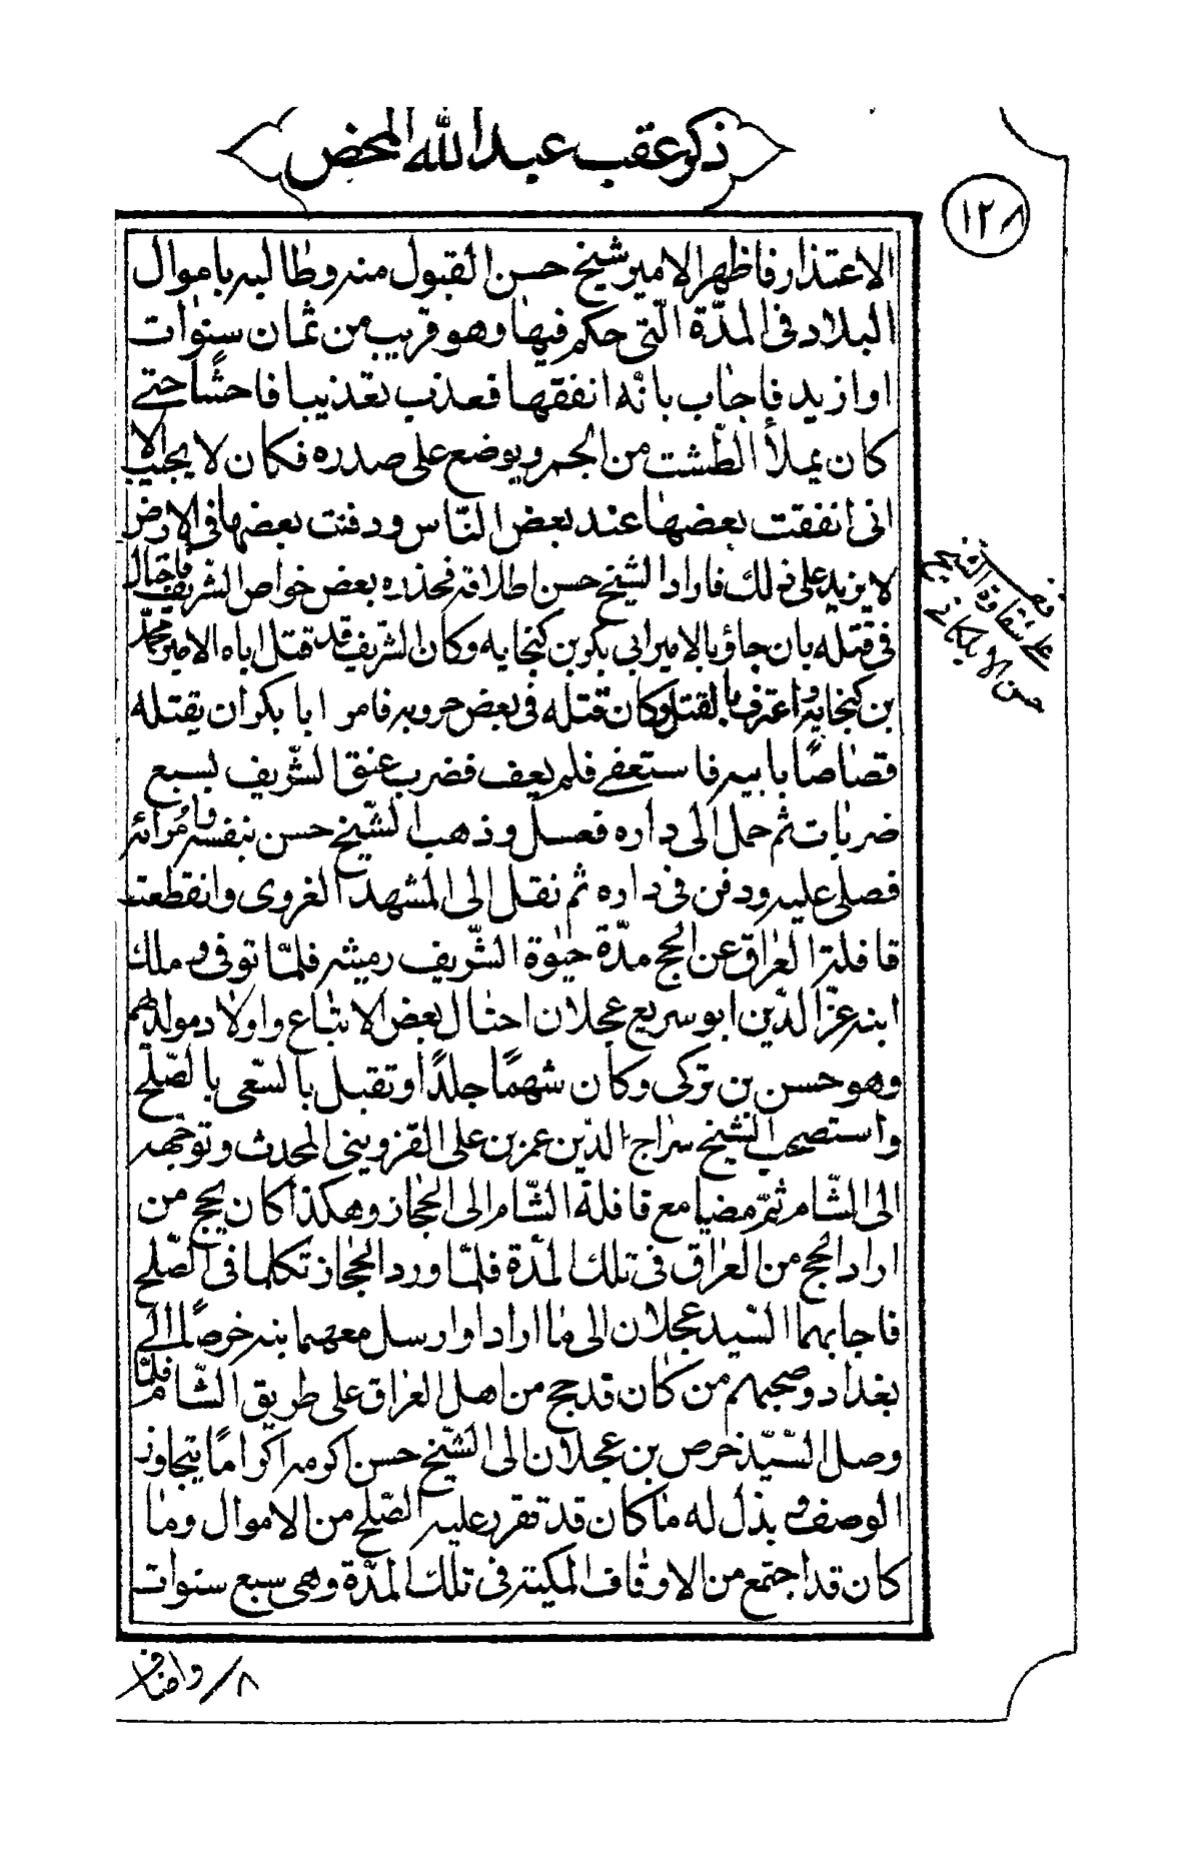 ذكر عقب عبد الله المحض
١٢٨
الاعتذار فاظهر الامير شيخ حسن القبول منه وطالبه باموال
البلاد فى المدّة الّتى حكم فيها وهو قريب من ثمان سنوات
او ازيد فاجاب بانّه انفقها فعذب تعذيبا فاحشًا حتى
كان يملأ الطّشت من الجمر ويوضع على صدره فكان لا يجيب الا
انى انفقت بعضها عند بعض النّاس ودفنت بعضها فى الارض
لا يزيد على ذلك فاراد الشيخ حسن اطلاقه فحذره بعض خواص الشريف فاحتال
فى قتله بان جاؤ بالامير ابى بكر بن كنجايه وكان الشريف قد قتل اباه الامير محمّد
بن كنجايه واعترف بالقتل وكان قتله فى بعض حروبه فامر ابا بكر ان يقتله
قصاصًا بابيه فاستعفى فلم يعف فضرب عنق الشّريف بسبع
ضربات ثم حمل الى داره فغسل وذهب الشّيخ حسن بنفسه وامرائه
فصلى عليه ودفن فى داره ثم نقل الى المشهد الغروى وانقطعت
قافلة العراق عن الحج مدّة حيوة الشّريف رميثه فلمّا توفى وملك
ابنه عزّ الدّين ابو سريع عجلان احتال بعض الاتباع واولاد مولدهم
وهو حسن بن تركى وكان شهمًا جلدًا وتقبل بالسّعى بالصّلح
واستصحب الشيخ سراج الدّين عمر بن على القزوينى المحدث وتوجّهد
الى الشّام ثمّ مضيا مع قافلة الشّام الى الحجاز وهكذا كان يحج من
اراد الحج من العراق فى تلك المدّة فلمّا ورد الحجاز تكلما فى الصّلح
فاجابهما السّيد عجلان الى ما ارادا وارسل معهما ابنه خرصًا الى
بغداد وصحبهم من كان قد حج من اهل العراق على طريق الشّام فلمّا
وصل السّيّد خرص بن عجلان الى الشّيخ حسن اكرمه اكرامًا يتجاوز
الوصف وبذل له ما كان قد تقرر عليه الصّلح من الاموال وما
كان قد اجتمع من الاوقاف المكيته فى تلك المدّة وهى سبع سنوات
على شقاوة الشيخ
حسن الايلكانى
٨/ واضاف